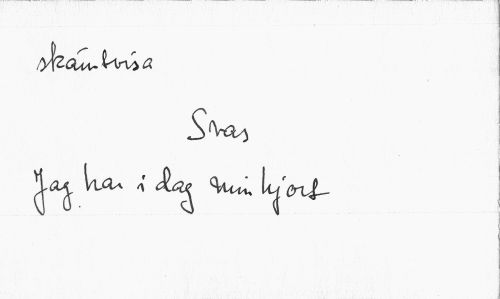 skämtvisa
Svas
Jag har i dag min hjort